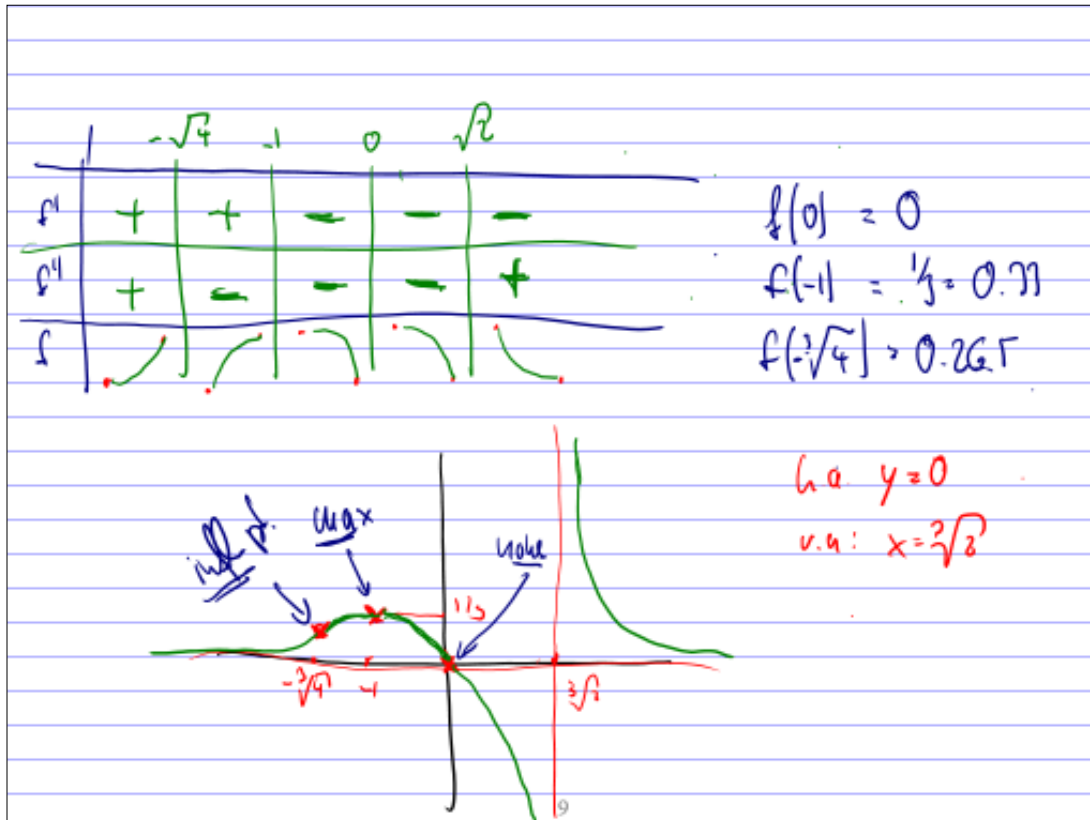 -√4 -1 0 √2
f' + + - - -
f'' + - - - +
f
f(0) = 0
f(-1) = 1/3 = 0.33
f(-∛4) = 0.265
h a. y=0
v.a: x=∛2
infl. pt.
max
1/3
-∛4 -1 ∛2
9